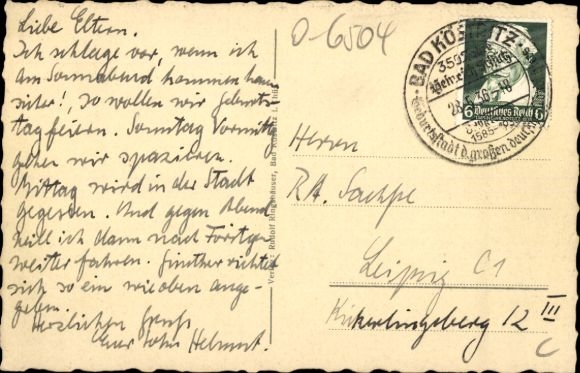 Liebe Eltern.
Ich schlage vor, wenn ich
am Sonnabend kommen kann
sicher!, so wollen wir Geburts-
tag feiern. Sonntag Vormittg
gehen wir spazieren.
Mittag wird in der Stadt
gegessen. Und gegen Abend
will ich dann nach
weiterfahren. Günther richtet
sich so ein wie oben ange-
geben.
Herzlichen Gruß
Euer Sohn Helmut.
Verlag: Rudolf Ringenhäuser, Bad Köstritz i. Thür.
D-6504
BAD KÖSTRITZ
Heinrich Schütz
Deutsches Reich
6 6
1585
Geburtsstadt d. großen deutschen
Herrn
RA. Sachse
Leipzig C1
Kickerlingsberg 12 III
C